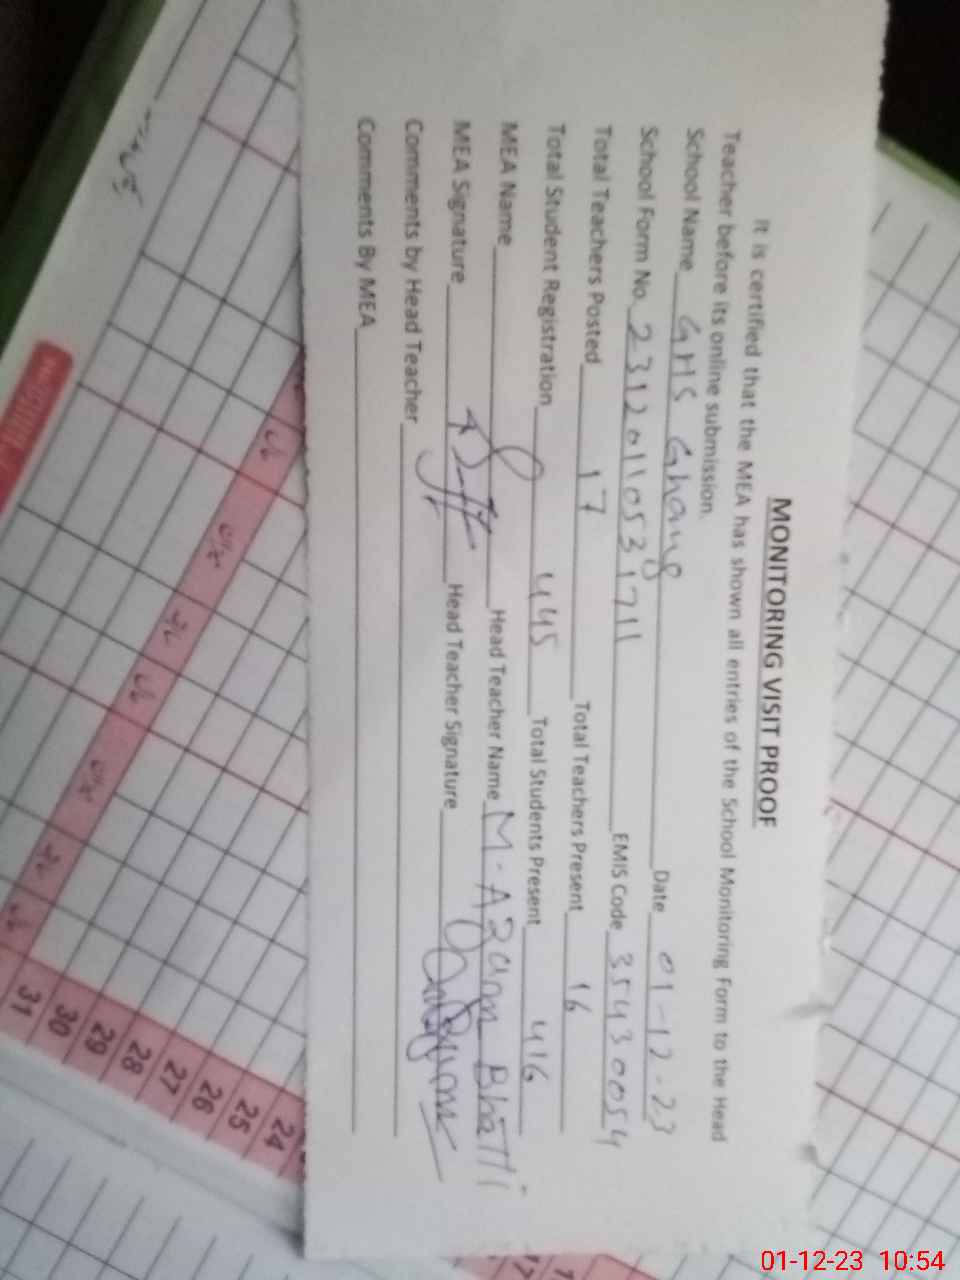 MONITORING VISIT PROOF
It is certified that the MEA has shown all entries of the School Monitoring Form to the Head
Teacher before its online submission.
School Name GHS Ghang Date 01-12-23
School Form No. 23120110531711 EMIS Code 35430054
Total Teachers Posted 17 Total Teachers Present 16
Total Student Registration 445 Total Students Present 416
MEA Name Head Teacher Name M. Azam Bhatti
MEA Signature Head Teacher Signature
Comments by Head Teacher
Comments By MEA
24
25
26
27
28
29
30
31
01-12-23 10:54